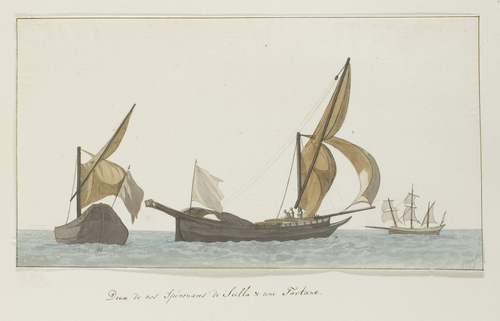 Deux de nos Speronares de Scilla & une Tartane.